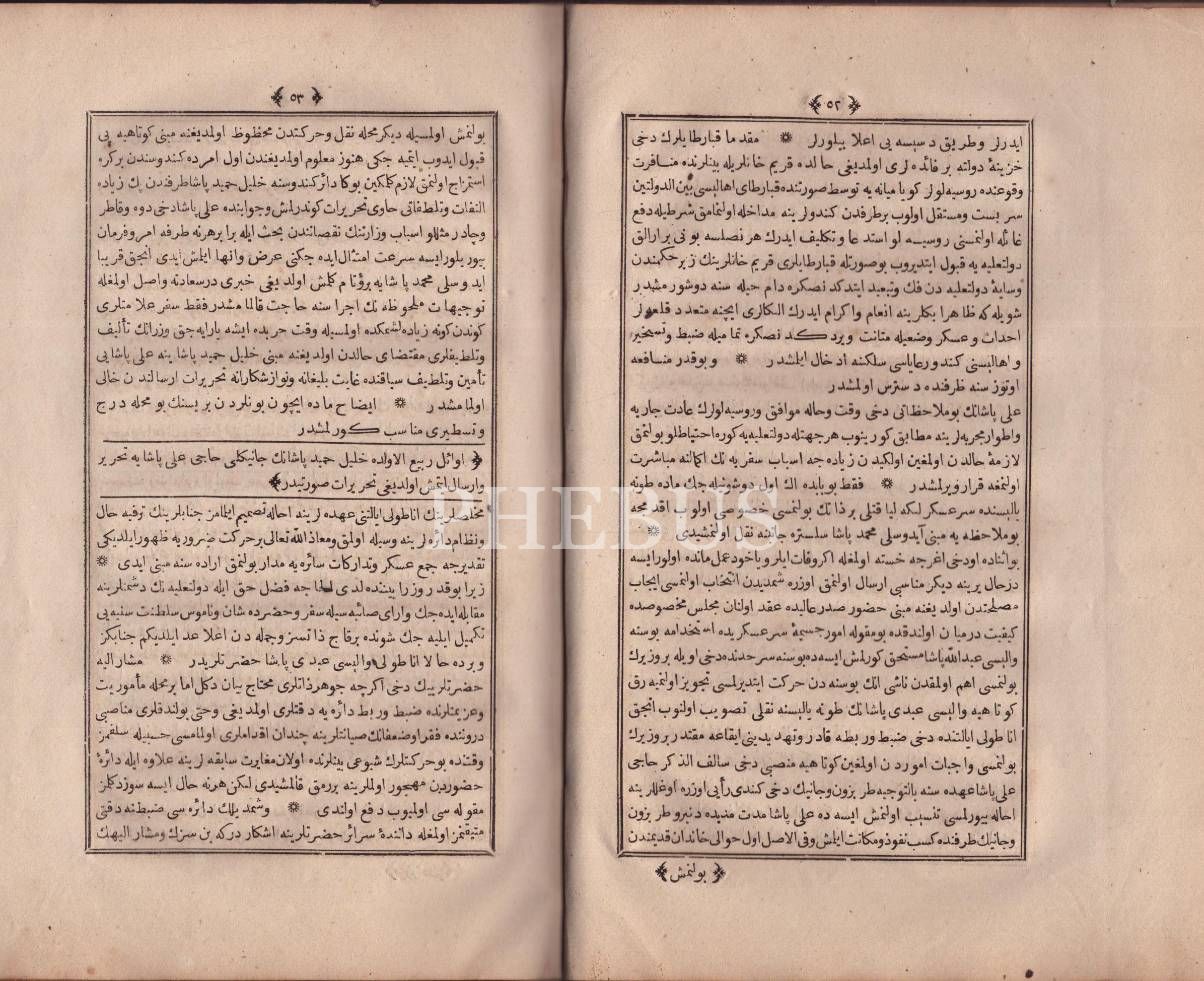 ﴿ ٥٢ ﴾
ايدرلر وطريق دسيسه يى اعلا بيلورلر ❊ مقدما قبارطايلرك دخى
خزينهٔ دولته بر فائده لرى اولمديغى حالده قريم خانلريله بينلرنده منافرت
وقوعنده روسيه لولر كويا ميانه يه توسط صورتنده قبارطاى اهاليسى بين الدولتين
سربست ومستقل اولوب برطرفدن كندولرينه مداخله اولنمامق شرطيله دفع
غائله اولنمسنى روسيه لو استدعا وتكليف ايدرك هر نصلسه بونى برارالق
دولتعليه يه قبول ايتديروب بوصورتله قبارطايلرى قريم خانلرينك زير حكمندن
وسايهٔ دولتعليه دن فك وتبعيد ايتدكدنصكره دام حيله سنه دوشورمشيدر
شويله كه ظاهرا بكلرينه انعام واكرام ايدرك الكالرى ايچنه متعدد قلعه لر
احداث وعسكر وضعيله متانت ويردكدنصكره تماميله ضبط وتسخير
واهاليسنى كندو رعاياسى سلكنه ادخال ايلمشدر ❊ وبوقدر منافعه
اوتوز سنه ظرفنده دسترس اولمشدر
على پاشانك بوملاحظاتى دخى وقت وحاله موافق وروسيه لولرك عادت جاريه
واطوار مجربه لرينه مطابق كورينوب هرجهتله دولتعليه يه كوره احتياطلو بولنمق
لازمهٔ حالدن اولمغين اولكيدن زياده جه اسباب سفريه نك اكمالنه مباشرت
اولنمغه قرار ويرلمشدر ❊ فقط بوبابده اك اول دوشونيله جك ماده طونه
يالبسنده سرعسكرلكه ليا قتلى بر ذاتك بولنمسى خصوصى اولوب اقدمجه
بوملاحظه يه مبنى آيدوسلى محمد پاشا سلستره جانبنه نقل اولنمشيدى ❊
بواثناده اودخى اغرجه خسته اولمغله اكر وفات ايلر وياخود عملمانده اولور ايسه
درحال يرينه ديكر مناسبى ارسال اولنمق اوزره شمديدن انتخاب اولنمسى ايجاب
مصلحتدن اولديغنه مبنى حضور صدر عاليده عقد اولنان مجلس مخصوصده
كيفيت درميان اولندقده بومقوله امور جسيمهٔ سرعسكريده استخدامه بوسنه
واليسى عبدالله پاشا مستحق كورلمش ايسه ده بوسنه سرحدنده دخى اويله بر وزيرك
بولنمسى اهم اولمقدن ناشى انك بوسنه دن حركت ايتديرلمسى تجويز اولنميه رق
كوتاهيه واليسى عبدى پاشانك طونه يالبسنه نقلى تصويب اولنوب انجق
اناطولى ايالتنده دخى ضبط وربطه قادر وتهديدينى ايقاعه مقتدر بر وزيرك
بولنمسى واجبات اموردن اولمغين كوتاهيه منصبى دخى سالف الذكر حاجى
على پاشا عهده سنه بالتوجيه طربزون وجانيك دخى كندى رأيى اوزره اوغللرينه
احاله بيورلمسى تنسيب اولنمش ايسه ده على پاشا مدت مديده دنبرو طربزون
وجانيك طرفنده كسب نفوذ ومكانت ايلمش وفى الاصل اول حوالى خاندان قديمندن
﴿ بولنمش ﴾
﴿ ٥٣ ﴾
بولنمش اولمسيله ديكر محله نقل وحركتدن محظوظ اولمديغنه مبنى كوتاهيه يى
قبول ايدوب ايتميه جكى هنوز معلوم اولمديغندن اول امرده كندوسندن بركره
استمزاج اولنمق لازم كلمكين بوكا دائر كندوسنه خليل حميد پاشا طرفندن پك زياده
التفات وتلطفاتى حاوى تحريرات كوندرلمش وجوابنده على پاشا دخى دوه وقاطر
وچادر مثللو اسباب وزارتنك نقصانندن بحث ايله برا بر هرنه طرفه امر وفرمان
بيوريلور ايسه سرعت امتثال ايده جكنى عرض وانها ايلمش ايدى انجق قريبا
ايدوسلى محمد پاشايه برؤ تام كلمش اولديغى خبرى درسعادته واصل اولمغله
توجيهات ملحوظه نك اجراسنه حاجت قالمامشدر فقط سفر علامتلرى
كوندن كونه زياده لشمكده اولمسيله وقت حربده ايشه يارايه جق وزرانك تأليف
وتلطيفلرى مقتضاى حالدن اولديغنه مبنى خليل حميد پاشا ينه على پاشايى
تأمين وتلطيف سياقنده غايت بليغانه ونوازشكارانه تحريرات ارسالندن خالى
اولمامشدر ❊ ايضاح ماده ايچون بونلردن بريسنك بومحله درج
وتسطيرى مناسب كورلمشدر
﴿ اوائل ربيع الاولده خليل حميد پاشانك جانيكلى حاجى على پاشايه تحرير
وارسال ايتمش اولديغى تحريرات صورتيدر ﴾
مخلصلرينك اناطولى ايالتنى عهده لرينه احاله تصميم ايتمامز جنابلرينك ترفيه حال
ونظام دائره لرينه وسيله اولمق ومعاذ الله تعالى بر حركت ضروريه ظهور ايلديكى
تقديرجه جمع عسكر وتداركات سائره يه مدار بولنمق اراده سنه مبنى ايدى ❊
زيرا بوقدر وزرا بيننده لدى الحاجه فضل حق ايله دولتعليه نك دشمنلرينه
مقابله ايده جك وآراى صائبه سيله سفر وحضرده شان وناموس سلطنت سنيه يى
تكميل ايليه جك شونده برقاچ ذاتسز وجمله دن اعلا عد ايلديكم جنابكز
وبرده حالا اناطولى واليسى عبدى پاشا حضرتلريدر ❊ مشار اليه
حضرتلرينك دخى اكرچه جوهر ذاتلرى محتاج بيان دكل اما بر محله مأموريت
وعزيمتلرنده ضبط وربط دائره يه دقتلرى اولمديغى وحتى بولندقلرى مناصبى
دروننده فقرا وضعفانك صيانتلرينه چندان اقداملرى اولمامسى حسبيله سلفمز
وقتنده بوحركتلرك شيوعى بينلرنده اولان مغايرت سابقه لرينه علاوه ايله دائرهٔ
حضوردن مهجور اولملرينه بررمق قالمشيدى لكن هرنه حال ايسه سوزدكلمز
مقوله سى اولميوب دفع اولندى ❊ وشمديلك دائره سى ضبطنه دقتى
متيقنمز اولمغله دانندهٔ سرائر حضرتلرينه اشكار دركه بن سزك ومشار اليهك
PHEBUS